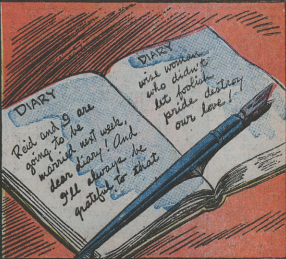 DIARY
Reid and I are
going to be
married next week,
dear diary! And
I'll always be
grateful to that
DIARY
wise woman
who didn't
let foolish
pride destroy
our love!